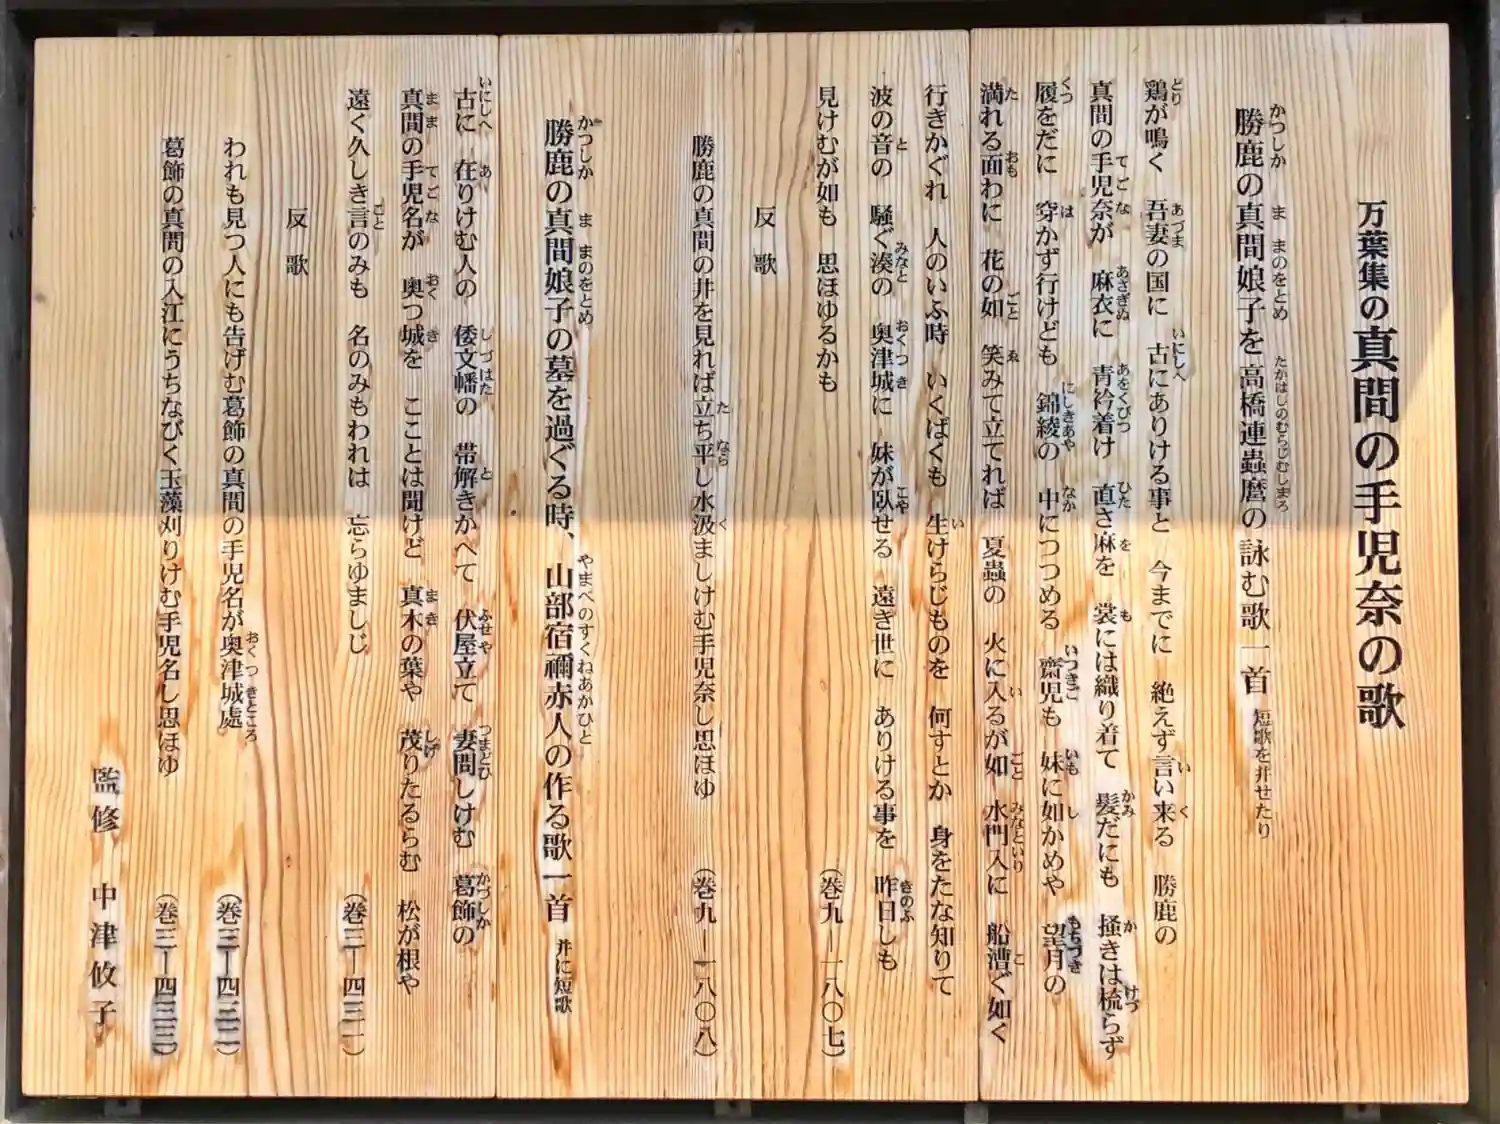 万葉集の真間の手児奈の歌
勝鹿の真間娘子を高橋連蟲麿の詠む歌一首 短歌を并せたり
鶏が鳴く 吾妻の国に 古にありける事と 今までに 絶えず言い来る 勝鹿の
真間の手児奈が 麻衣に 青衿着け 直さ麻を 裳には織り着て 髪だにも 掻きは梳らず
履をだに 穿かず行けども 錦綾の 中につつめる 齋児も 妹に如かめや 望月の
満れる面わに 花の如 笑みて立てれば 夏蟲の 火に入るが如 水門入に 船漕ぐ如く
行きかぐれ 人のいふ時 いくばくも 生けらじものを 何すとか 身をたな知りて
波の音の 騒ぐ湊の 奥津城に 妹が臥せる 遠き世に ありける事を 昨日しも
見けむが如も 思ほゆるかも (巻九ー一八〇七)
反歌
勝鹿の真間の井を見れば立ち平し水汲ましけむ手児奈し思ほゆ (巻九ー一八〇八)
勝鹿の真間娘子の墓を過ぐる時、山部宿禰赤人の作る歌一首 并に短歌
古に 在りけむ人の 倭文幡の 帯解きかへて 伏屋立て 妻問しけむ 葛飾の
真間の手児名が 奥つ城を こことは聞けど 真木の葉や 茂りたるらむ 松が根や
遠く久しき言のみも 名のみもわれは 忘らゆましじ (巻三ー四三一)
反歌
われも見つ人にも告げむ葛飾の真間の手児名が奥津城處 (巻三ー四三二)
葛飾の真間の入江にうちなびく玉藻刈りけむ手児名し思ほゆ (巻三ー四三三)
監修 中津攸子